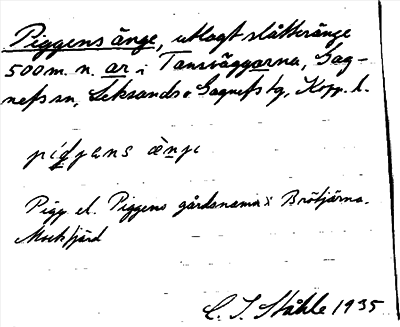 Piggens änge, utlagt slåtteränge
500m. n. ar i Tansväggarna, Gag-
nefs sn, Leksands o Gagnefs tg, Kopp. l.
pigjans änje
Pigg el. Piggens gårdsnamn i Brötjärna.
Mockfjärd
C. I. Ståhle 1935